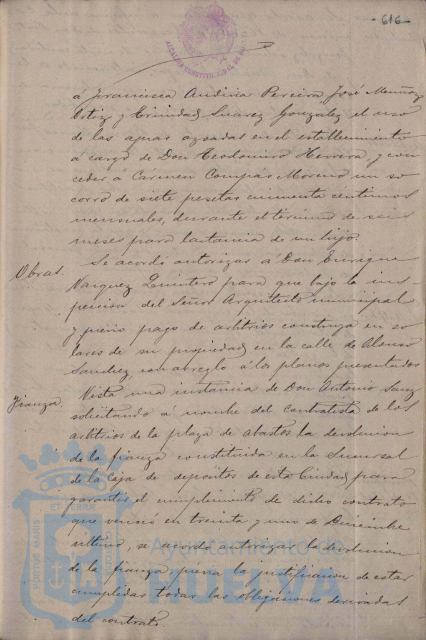 - 616 -
ALCALDIA CONSTITUCIONAL DE
á Francisca Andivia Pereira, José Muñoz
Ortiz y Trinidad Suarez Gonzalez el uso
de las aguas azoadas en el establecimiento
á cargo de Don Teodomiro Herrera y con
ceder á Carmen Compás Moreno un so
corro de siete pesetas cincuenta centimos
mensuales, durante el termino de seis
meses para lactancia de un hijo.
Obras. Se acordo autorizar á Don Enrique
Vazquez Quintero para que bajo la ins-
peccion del Señor Arquitecto municipal
y previo pago de arbitrios construya en so
lares de su propiedad en la calle de Alonso
Sanchez, con arreglo á los planos presentados
Fianza. Vista una instancia de Don Antonio
solicitando á nombre del contratista de los
arbitrios de la plaza de abastos la devolucion
de la fianza constituida en la Sucursal
de la Caja de depositos de esta Ciudad para
garantir el cumplimiento de dicho contrato
que venció en treinta y uno de Diciembre
ultimo, se acordo autorizar la devolucion
de la fianza previa la justificacion de estar
cumplidas todas las obligaciones derivadas
del contrato.
PORTUS MARIS ET TERRAE CUSTODIA
Ayuntamiento de
HUELVA